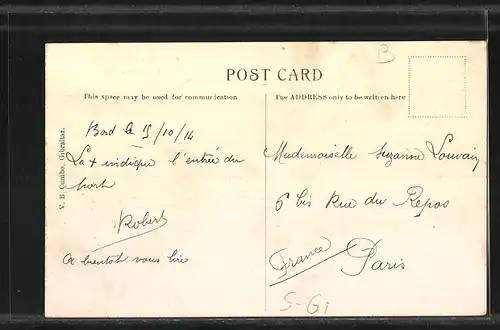 B
POST CARD
This space may be used for communication
The ADDRESS only to be written here
V. B. Cumbo, Gibraltar.
Bord le 15/10/14
La + indique l'entrée du
port
Robert
A bientôt vous lire
Mademoiselle Suzanne Louvain
6 bis Rue du Repos
Paris
France
S-Gi